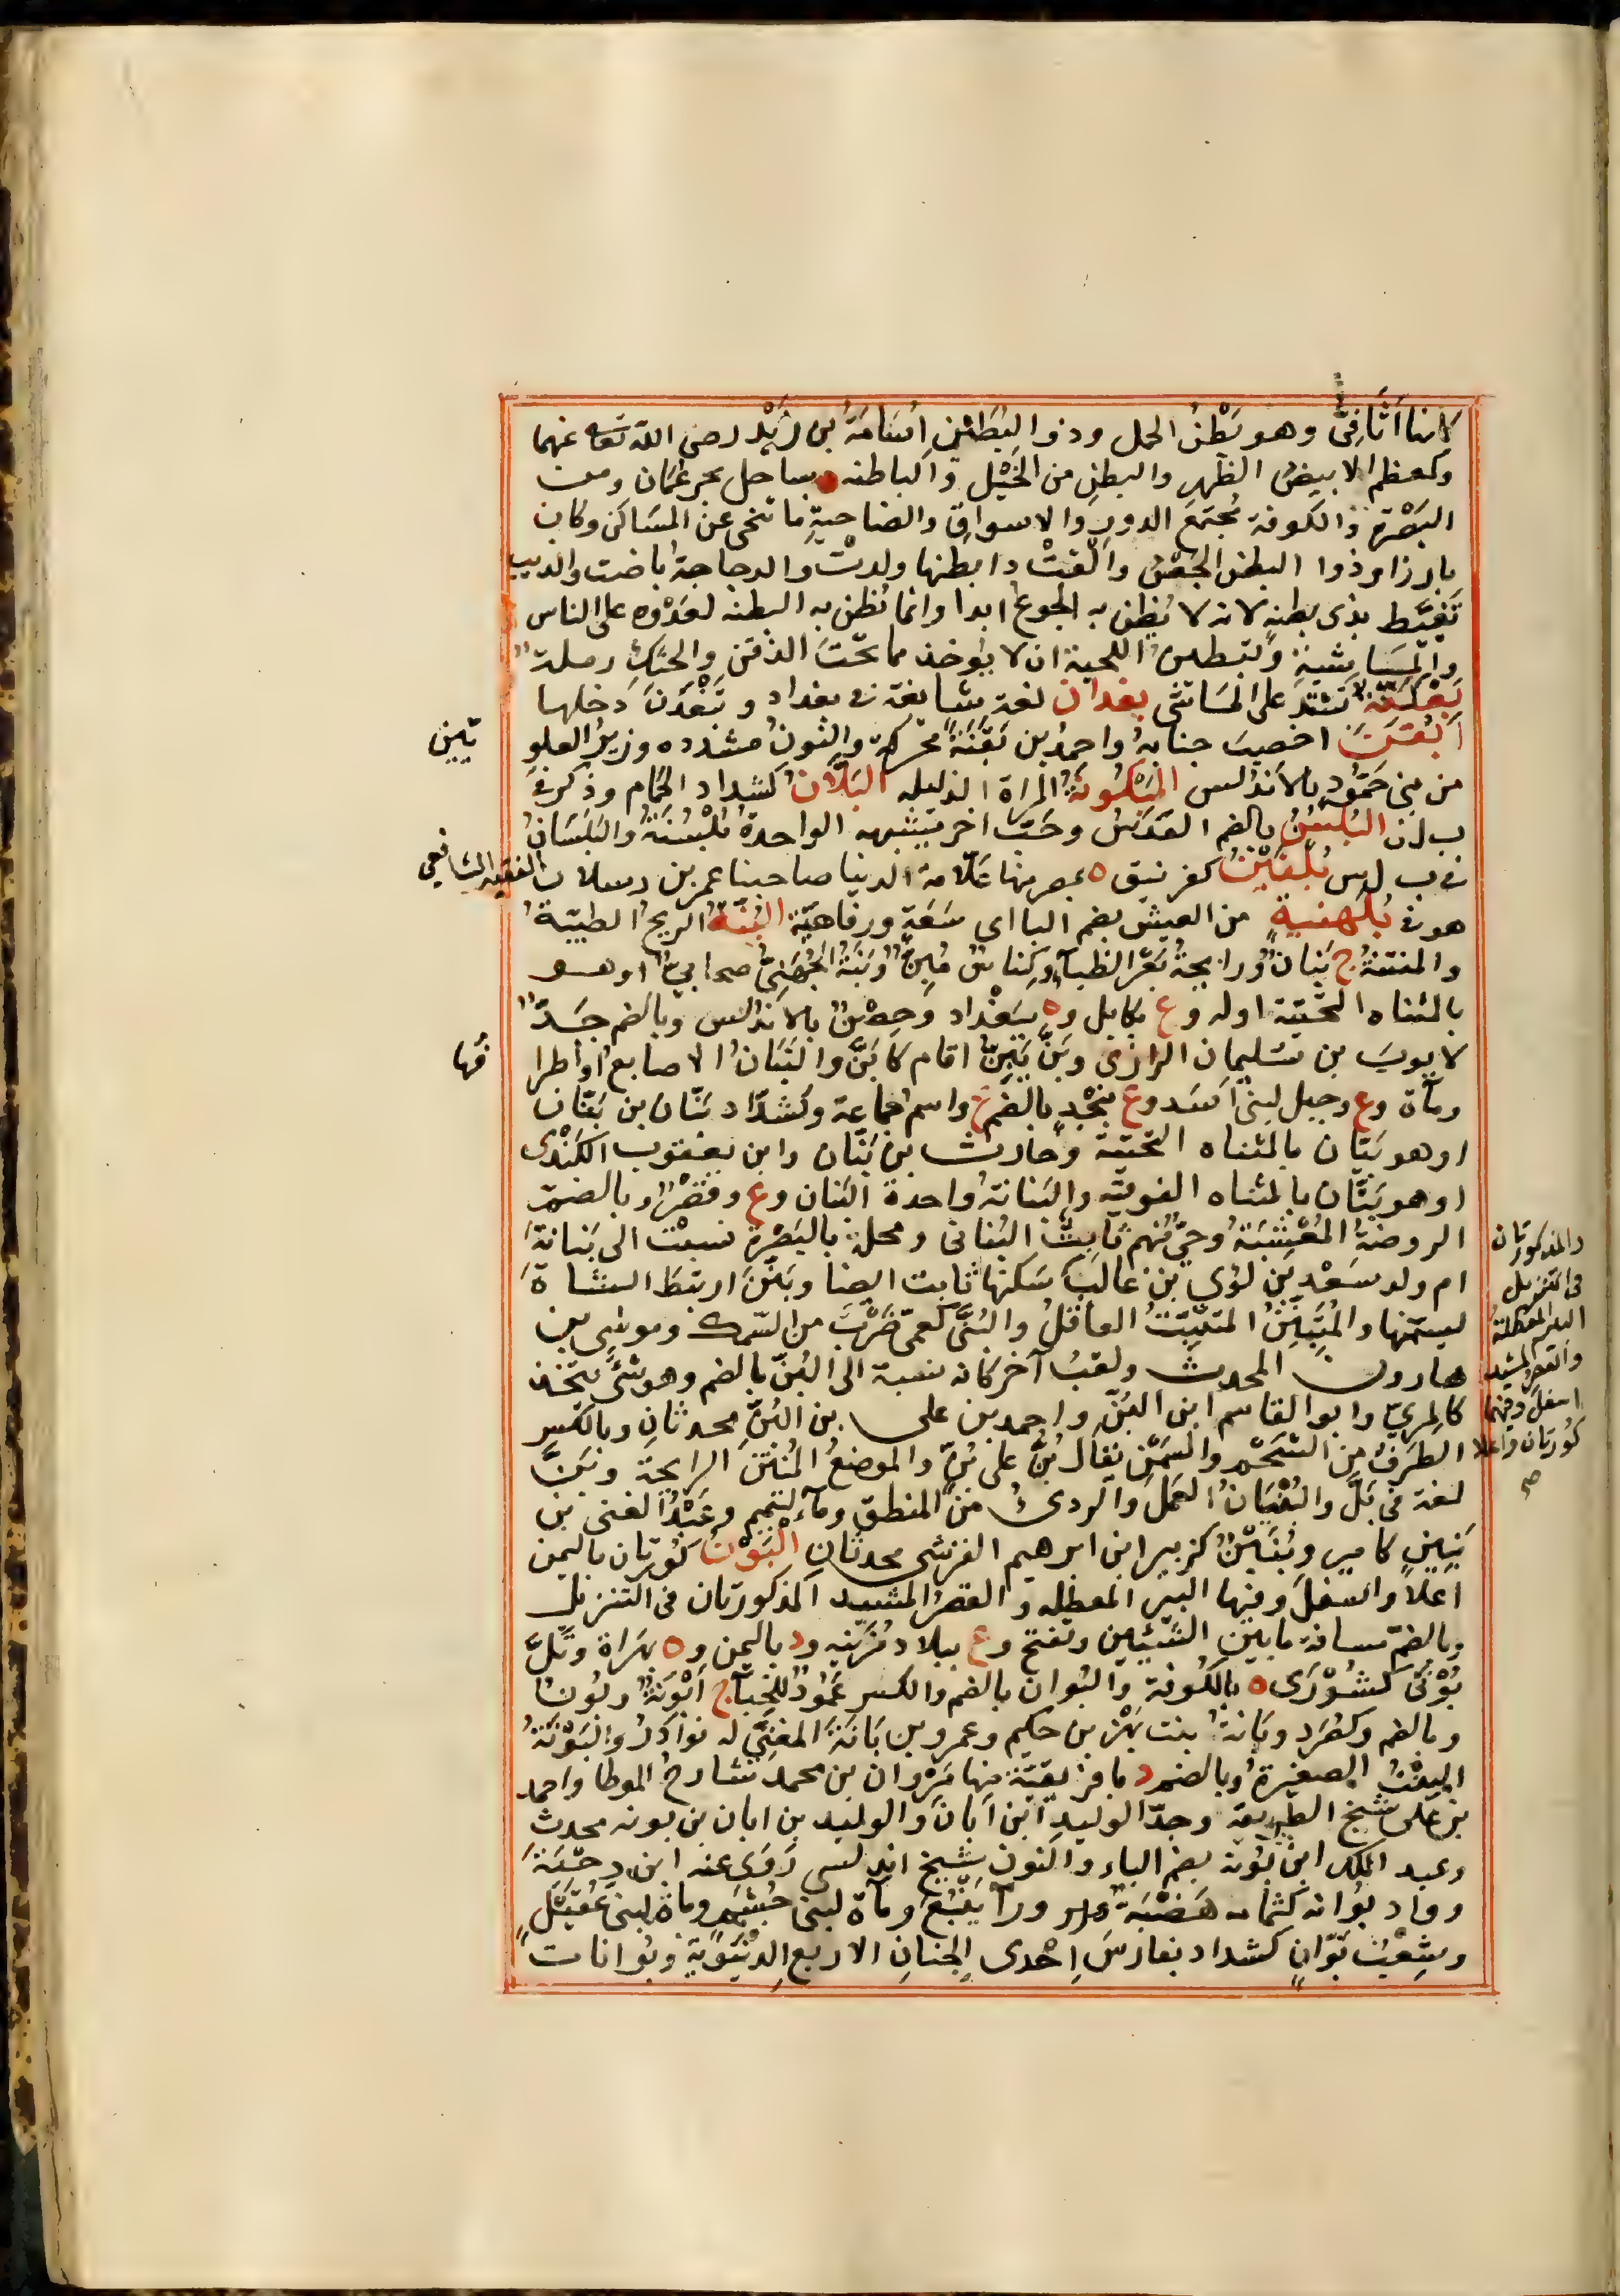 كانها أثافي وهو بَطْنُ الحمل وذو البُطَيْنِ أسَامَةُ بن زَيْد رضى الله تعالى عنهما
وكمعظم الابيضُ الظهرِ والبطنِ من الخَيْل والباطنه ه بساحل بحر عُمَان ومن
البَصْرَة والكوفة مُجتمَعُ الدورِ والاسواقِ والضاحيةِ ما تنحى عن المسَاكن وكان
بارزا وذوا البطن الجَعْسُ وألقتْ ذا بطنها ولدتْ والدجاجةُ باضت والذيب
تغبَّط بذى بطنهِ لانه لا يُظن به الجوع ابدا وانما تُظن به البطنه لعَدْوه على الناس
والمَاشيةِ وتبطين اللحية ان لا يؤخذ مما تحْتَ الذقن والحنك رملة
بَعْكَنَةٌ تشتدّ على الماشى بغدان لغة شائعة فى بغداد وتَبَغْدَنَ دخلها
أبْقَنَ اخصب جنابهُ واحمدُ بن بَقَنَةَ محركة والنونُ مشدده وزيرُ العلو
يّين
من بنى حَمُّودٍ بالاندلس المَبْكُونَةُ المراة الذليله البَلَّانُ كشداد الحمام وذكر فى
ب ل ل البُلسُنُ بالضم العَدَسُ وحَبّ آخر يشبهه الواحدة بُلْسُنَةٌ والبَلَسَانُ
فى ب ل س بُلْقِيْنَةُ كغرنيق ه بمصر منها عَلّامة الدنيا صاحبنا عمر بن رسلان
الفقيه الشافعى
هو فى بُلَهْنِيةٍ من العيش بضم البا اى سَعَةٍ ورفاهيّة البَنَّةُ الريحُ الطيبةُ
والمنتنة ج بِنَان ورايحةُ بَعَرِ الظبآءِ وكِناسٌ مُبِنٌّ وبَنَّةُ الجُهَنِىّ صحابىّ اوهو
بالمثناه التحتية اوله وع بكابل وه ببَغْداد وحِصْنٌ بالاندلس وبالضم جَدّ
لايوب بن سليمان الرازى وبَنَّ يَبِنُّ اقام كأبَنَّ والبَنَانُ الاصابع او اطرا
فُها
ومآة وع وجبل لبنى اسَد وع بنجْدٍ بالضم ع واسم جماعة وكشدّاد بَنّان بن بَنّان
او هو بَيّان بالمثناه التحتية وحارث بن بَنّان وابن يعقوب الكندى
او هو بَتّان بالمثناه الفوقية والبَنانةُ واحدة البَنان وع وقَصْر وبالضم
الروضةُ المُعْشِبَةُ وحىّ منهم ثابِتٌ البُنانى ومحلة بالبَصْرة نسبت الى بُنانةَ
ام ولد سَعْدِ بن لؤى بن غالبٍ سَكنها ثابت ايضا وبَنَّنَ ارتبطَ الشاةَ
ليسمّنها والمُتَبَنِّنُ المتثبّتُ العاقلُ والبُنَّى كعمّى ضَرْبٌ من السّمك وموسى بن
هارون المحدث ولقبُ آخر كانه نسبة الى البُنّ بالضم وهو شئ يتّخذ
كالمرىّ وابو القاسم ابن البُنّ واحمد بن على بن البُنّ محدثانِ وبالكسر
الطرفُ من الشحْمِ والسمَن يقال بِنٌّ على بِنٍّ والموضعُ المُنْتن الرايحة وبَنَّ
لغة فى بَلَّ والبُنْيَانُ العَمَلُ والردىءُ من المنطق ومآ لتميم وعَبْدُ الغنى بن
بَنِينٍ كامير وبُنَيْنٌ كزبير ابن ابرهيم القرشى محدثانِ البَوْنُ كُورتان باليمن
اعلا واسفلَ وفيها البير المعطله والقصر المشيد المذكورتان فى التنزيل
وبالضمّ مسافة ما بين الشيئين وتفتح وع ببلاد مُزَيْنه ود باليمن وه بهَراة وتَلُّ
بُوْنَى كشُوْرَى ه بالكُوفة والبُوان بالضم والكسر عَمُودٌ للخبآء ج أبْوِنَةٌ وبُونٌ
وبالضم وكصُرَد وبَانةُ بنت بَهْز بن حكيم وعمرو بن بَانَةَ المغنِّى له نوادرُ والبَوْنَةُ
البِنْتُ الصغيرةُ وبالضم د بافريقيّة منها مَرْوان بن محمد شارحُ الموطا واحمد
بن على شيخ الطريقة وجدّ الوليد ابن ابان والوليد بن ابان بن بونه محدث
وعبد الملك ابن بُونُه بضم الباء والنون شيخ اندلسى رَوَى عنه ابن دِحْيَةَ
وواد بُوَانه كثمامه هَضْبَةٌ ورآ يَنْبُعَ ومآة لبنى جُشَم ومآة لبنى عُقَيْل
وشِعْبُ بَوّانٍ كشداد بفارسَ اِحْدى الجنانِ الاربع الدنيويّة وبُوانات
والمذكورتان
فى التنزيل
البير المعطلة
والقصر المشيد
اسفل وفيهما
كُورتان واعلا
صح